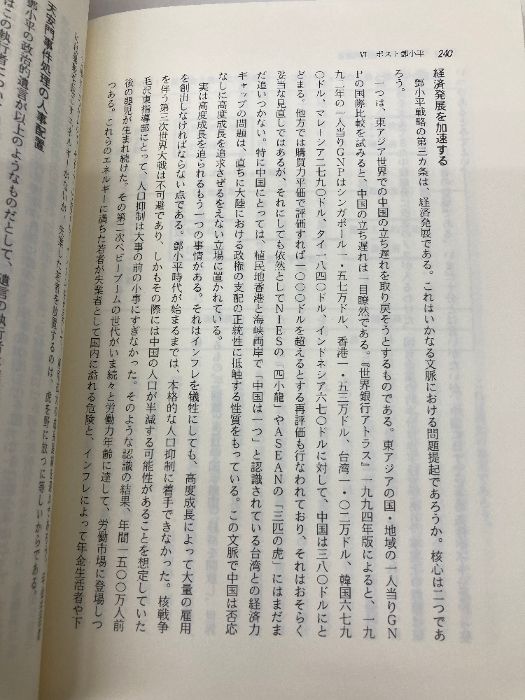 Ⅵ ポスト鄧小平 240
経済発展を加速する
鄧小平戦略の第三カ条は、経済発展である。これはいかなる文脈における問題提起であろうか。核心は二つであ
ろう。
一つは、東アジア世界での中国の立ち遅れを取り戻そうとするものである。東アジアの国・地域の一人当りGN
Pの国際比較を試みると、中国の立ち遅れは一目瞭然である。『世界銀行アトラス』一九九四年版によると、一九
九二年の一人当りGNPはシンガポール一・五七万ドル、香港一・五三万ドル、台湾一・〇二万ドル、韓国六七九
〇ドル、マレーシア二七九〇ドル、タイ一八四〇ドル、インドネシア六七〇ドルに対して、中国は三八〇ドルにと
どまる。他方では購買力平価で評価すれば一〇〇〇ドルを超えるとする再評価も行なわれており、それはおそらく
妥当な見直しではあるが、それにしても依然としてNIESの「四小龍」やASEANの「三匹の虎」にはまだま
だ追いつかない。特に中国にとっては、植民地香港と海峡両岸で「中国は一つ」と認識されている台湾との経済力
ギャップの問題は、直ちに大陸における政権の支配の正統性に抵触する性質をもっている。この文脈で中国は否応
なしに高度成長を追求せざるをえない立場に置かれている。
実は高度成長を迫られるもう一つの事情がある。それはインフレを犠牲にしても、高度成長によって大量の雇用
を創出しなければならない点である。鄧小平時代が始まるまでは、本格的な人口抑制に着手できなかった。核戦争
を伴う第三次世界大戦は不可避であり、しかもその際には中国の人口が半減する可能性があることを想定していた
毛沢東指導部にとって、人口抑制は大事の前の小事にすぎなかった。そのような認識の結果、年間一五〇〇万人前
後の嬰児が生まれ続けた。その第二次ベビーブームの世代がいま続々と労働力年齢に達して、労働市場に登場しつ
つある。これらのエネルギーに満ちた若者が失業者として国内に溢れる危険と、インフレによって年金生活者や下
するのは、虎を野に放つに等しいからである。
天安門事件処理の人事配置
鄧小平の政治的遺言が以上のようなものだとして、遺言の執行
はこの執行者に